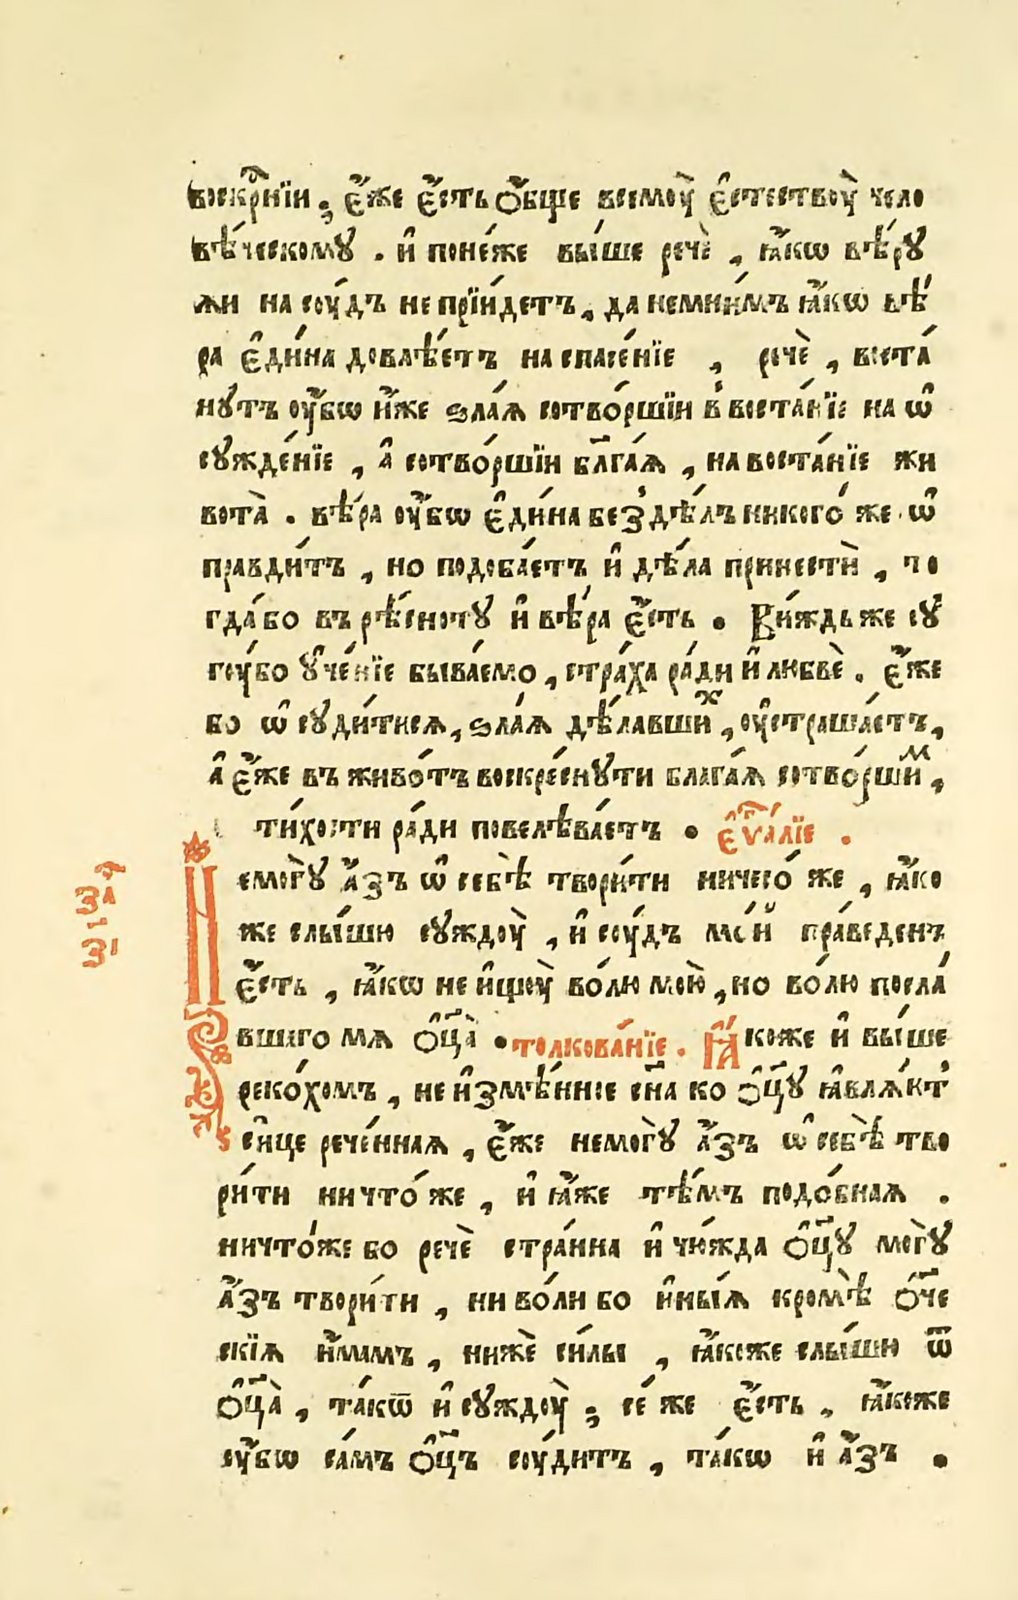 воскр҃нїи, є҆́же є҆́сть ѻ҆́бще всемоу̀ є҆стествоу̀ чело
вѣ́ческомꙋ . и҆ поне́же вы́ше речѐ , ꙗ҆́кѡ вѣ́рꙋ
ѧи на соу́дъ не прїи́детъ, да немни́мъ ꙗ҆́кѡ вѣ́
ра є҆ди́на довлѣ́етъ на спасе́нїе , речѐ , воста́
нꙋтъ оу҆́бѡ и҆́же ѕла́ѧ сотво́ршїи в̾ воста́нїе на ѡ҆
сꙋжде́нїе , а҆ сотво́ршїи бл҃га́ѧ , на воста́нїе жи
вота̀ . вѣ́ра оу҆́бѡ є҆ди́на без̾ дѣ́лъ никого́ же ѡ҆
правди́тъ , но подоба́етъ и҆ дѣ́ла принестѝ , то
гда́ бо въ рѣ́снотꙋ и҆ вѣ́ра є҆́сть . Ви́ждь же сꙋ
гоу́бо ᲂу҆че́нїе быва́емо , стра́ха ра́ди и҆ любвѐ . є҆́же
бо ѡ҆ сꙋди́тисѧ, ѕла́ѧ дѣ́лавшиⷯ , оу҆страша́етъ,
а҆ є҆́же въ живо́тъ воскре́снꙋти блага́ѧ сотво́ршиⷨ ,
ти́хости ра́ди повелѣва́етъ . є҆ѵⷢ҇а́лїе .
Немогꙋ̀ а҆́зъ ѡ҆ себѣ̀ твори́ти ничесо́ же , ꙗ҆́ко
же слы́шю сꙋждоу̀ , и҆ соу́дъ мо́й пра́веденъ
є҆́сть , ꙗ҆́кѡ не и҆щоу̀ во́лю мою̀ , но во́лю посла́
вшаго мѧ ѻ҆ц҃а̀ . толкова́нїе . Ꙗ҆́коже и҆ вы́ше
реко́хомъ , не и҆змѣ́нние сн҃а ко ѻ҆ц҃ꙋ ꙗ҆влѧ́ют̾
си́це рече́ннаѧ , є҆́же немогꙋ̀ а҆́зъ ѡ҆ себѣ̀ тво
ри́ти ничто́ же , и҆ ꙗ҆́же тѣ́мъ подо́бнаѧ .
ничто́же бо речѐ стра́нна и҆ чю́жда ѻ҆ц҃ꙋ могꙋ̀
а҆́зъ твори́ти , ни во́ли бо и҆ны́ѧ кромѣ̀ ѻ҆ч҃е
скїѧ и҆́мамъ , нижѐ си́лы , ꙗ҆́коже слы́шю ѿ
ѻ҆ц҃а̀ , та́кѿ и҆ сꙋждоу̀ ; се́ же є҆́сть , ꙗ҆́коже
оу҆́бѡ са́мъ ѻ҆ц҃ъ соу́дитъ , та́кѡ и҆ а҆́зъ .
заⷱ҇
з҃і